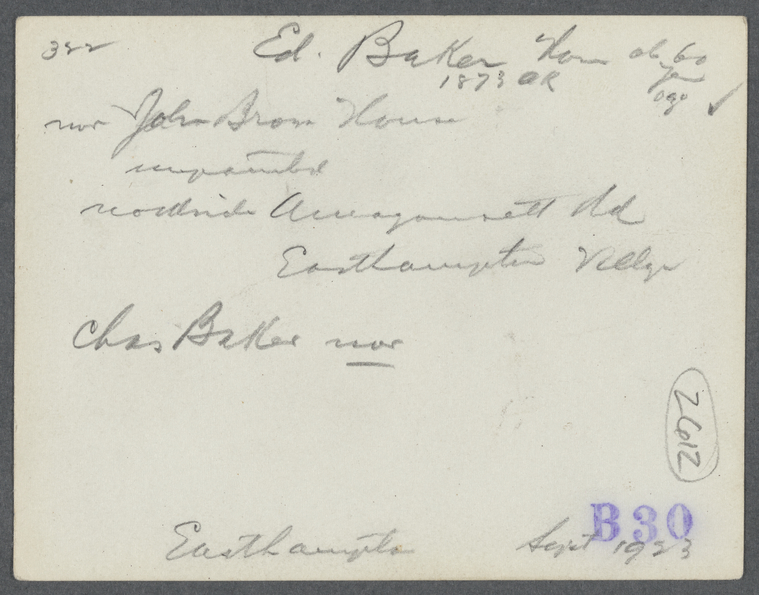 322 Ed. Baker Hom ab 60
yrs
1873 OK
ago ✓
now John Brown House
unpainted
northside Amagansett Rd
Easthampton Village
Chas Baker now
2612
B30
Easthampton Sept 1923